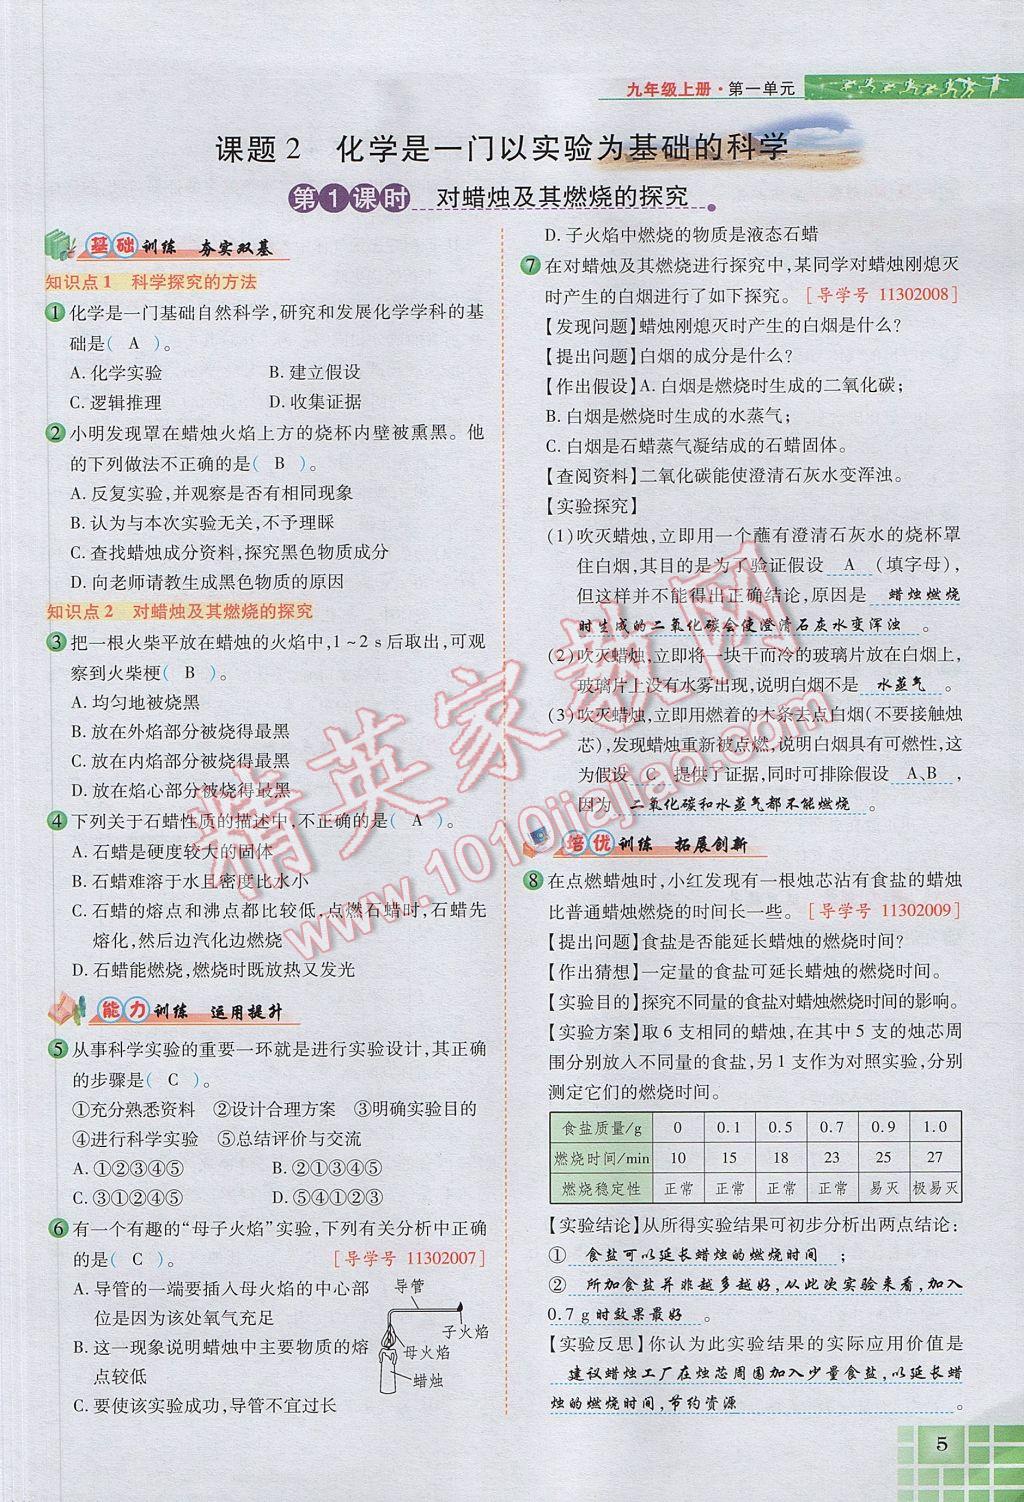 九年级上册·第一单元
课题2 化学是一门以实验为基础的科学
第1课时 对蜡烛及其燃烧的探究
基础训练 夯实双基
知识点1 科学探究的方法
1 化学是一门基础自然科学,研究和发展化学学科的基
础是( A )。
A. 化学实验 B. 建立假设
C. 逻辑推理 D. 收集证据
2 小明发现罩在蜡烛火焰上方的烧杯内壁被熏黑。他
的下列做法不正确的是( B )。
A. 反复实验,并观察是否有相同现象
B. 认为与本次实验无关,不予理睬
C. 查找蜡烛成分资料,探究黑色物质成分
D. 向老师请教生成黑色物质的原因
知识点2 对蜡烛及其燃烧的探究
3 把一根火柴平放在蜡烛的火焰中,1~2 s后取出,可观
察到火柴梗( B )。
A. 均匀地被烧黑
B. 放在外焰部分被烧得最黑
C. 放在内焰部分被烧得最黑
D. 放在焰心部分被烧得最黑
4 下列关于石蜡性质的描述中,不正确的是( A )。
A. 石蜡是硬度较大的固体
B. 石蜡难溶于水且密度比水小
C. 石蜡的熔点和沸点都比较低,点燃石蜡时,石蜡先
熔化,然后边汽化边燃烧
D. 石蜡能燃烧,燃烧时既放热又发光
能力训练 运用提升
5 从事科学实验的重要一环就是进行实验设计,其正确
的步骤是( C )。
①充分熟悉资料 ②设计合理方案 ③明确实验目的
④进行科学实验 ⑤总结评价与交流
A. ①②③④⑤ B. ②①③④⑤
C. ③①②④⑤ D. ⑤④①②③
6 有一个有趣的“母子火焰”实验,下列有关分析中正确
的是( C )。 [导学号 11302007]
A. 导管的一端要插入母火焰的中心部
位是因为该处氧气充足
B. 这一现象说明蜡烛中主要物质的熔
点较低
C. 要使该实验成功,导管不宜过长
导管
子火焰
母火焰
蜡烛
D. 子火焰中燃烧的物质是液态石蜡
7 在对蜡烛及其燃烧进行探究中,某同学对蜡烛刚熄灭
时产生的白烟进行了如下探究。[导学号 11302008]
【发现问题】蜡烛刚熄灭时产生的白烟是什么?
【提出问题】白烟的成分是什么?
【作出假设】A. 白烟是燃烧时生成的二氧化碳;
B. 白烟是燃烧时生成的水蒸气;
C. 白烟是石蜡蒸气凝结成的石蜡固体。
【查阅资料】二氧化碳能使澄清石灰水变浑浊。
【实验探究】
(1)吹灭蜡烛,立即用一个蘸有澄清石灰水的烧杯罩
住白烟,其目的是为了验证假设 A (填字母),
但这样并不能得出正确结论,原因是 蜡烛燃烧
时生成的二氧化碳会使澄清石灰水变浑浊 。
(2)吹灭蜡烛,立即将一块干而冷的玻璃片放在白烟上,
玻璃片上没有水雾出现,说明白烟不是 水蒸气 。
(3)吹灭蜡烛,立即用燃着的木条去点白烟(不要接触烛
芯),发现蜡烛重新被点燃,说明白烟具有可燃性,这
为假设 C 提供了证据,同时可排除假设 A、B ,
因为 二氧化碳和水蒸气都不能燃烧 。
培优训练 拓展创新
8 在点燃蜡烛时,小红发现有一根烛芯沾有食盐的蜡烛
比普通蜡烛燃烧的时间长一些。[导学号 11302009]
【提出问题】食盐是否能延长蜡烛的燃烧时间?
【作出猜想】一定量的食盐可延长蜡烛的燃烧时间。
【实验目的】探究不同量的食盐对蜡烛燃烧时间的影响。
【实验方案】取6支相同的蜡烛,在其中5支的烛芯周
围分别放入不同量的食盐,另1支作为对照实验,分别
测定它们的燃烧时间。
食盐质量/g 0 0.1 0.5 0.7 0.9 1.0
燃烧时间/min 10 15 18 23 25 27
燃烧稳定性 正常 正常 正常 正常 易灭 极易灭
【实验结论】从所得实验结果可初步分析出两点结论:
① 食盐可以延长蜡烛的燃烧时间 ;
② 所加食盐并非越多越好,从此次实验来看,加入
0.7 g时效果最好 。
【实验反思】你认为此实验结果的实际应用价值是
建议蜡烛工厂在烛芯周围加入少量食盐,以延长蜡
烛的燃烧时间,节约资源 。
5
精英家教网
www.1010jiajiao.com